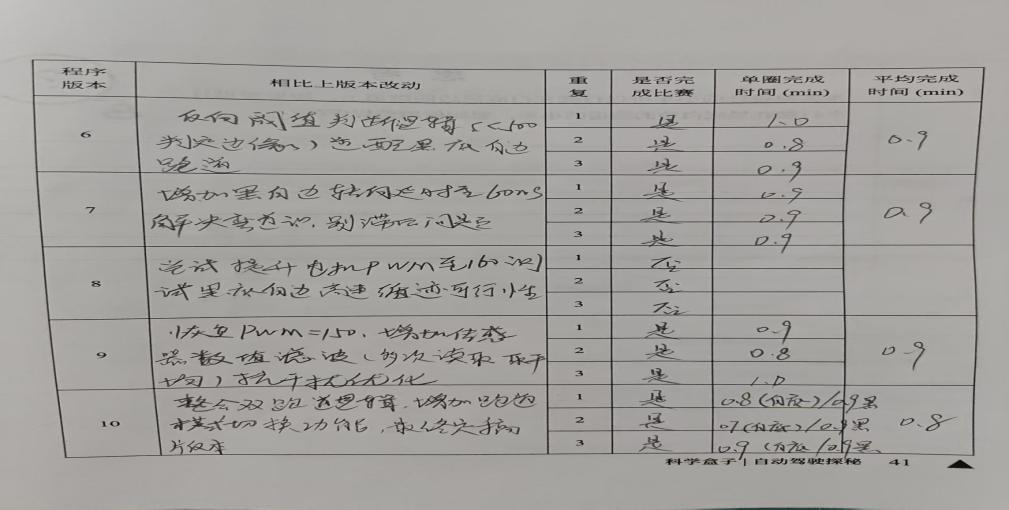 程序版本 相比上版本改动 重复 是否完成比赛 单圈完成时间 (min) 平均完成时间 (min)
6 反向阈值判断逻辑 (<500 1 是 1.0 0.9
判定边缘), 适配黑底白边 2 是 0.8
跑道 3 是 0.9
7 增加黑白边转向延时至60ms 1 是 0.9 0.9
解决弯道识别滞后问题 2 是 0.9
3 是 0.9
8 尝试提升电机PWM至160测 1 否
试黑底白边高速循迹可行性 2 否
3 否
9 恢复PWM=150. 增加传感 1 是 0.9 0.9
器数值滤波(多次读取取平 2 是 0.8
均)抗干扰优化 3 是 1.0
10 整合双跑道逻辑, 增加跑道 1 是 0.8(白底)/0.9黑 0.8
模式切换功能, 最终 2 是 0.7(白底)/0.9黑
版本 3 是 0.9(白底/0.9黑
科学盒子 | 自动驾驶探秘 41